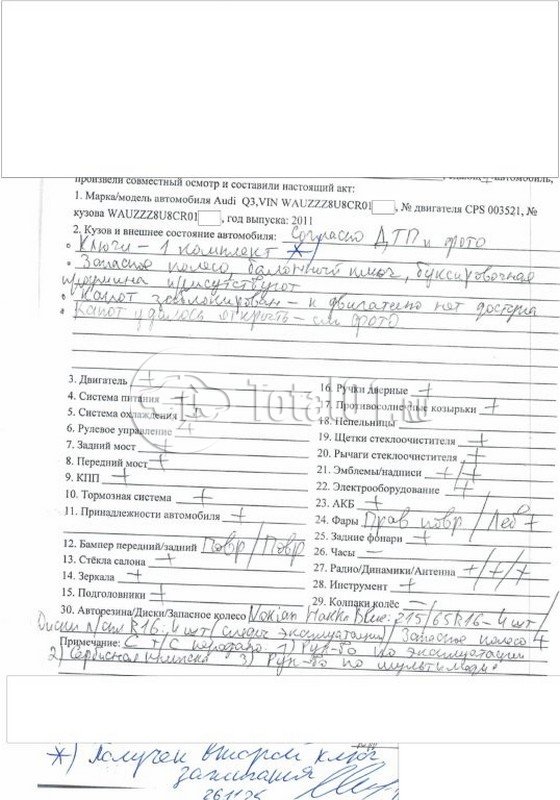 произвели совместный осмотр и составили настоящий акт:
1. Марка/модель автомобиля Audi Q3,VIN WAUZZZ8U8CR01 , № двигателя CPS 003521, №
кузова WAUZZZ8U8CR01 , год выпуска: 2011
2. Кузов и внешнее состояние автомобиля: Согласно ДТП и фото
• Ключи – 1 комплект *)
• Запасное колесо, балонный ключ, буксировочная
проушина присутствуют
• Капот заблокирован – к двигателю нет доступа
• Капот удалось открыть – см фото
3. Двигатель +
4. Система питания +
5. Система охлаждения +
6. Рулевое управление +
7. Задний мост +
8. Передний мост +
9. КПП +
10. Тормозная система +
11. Принадлежности автомобиля +
12. Бампер передний/задний Повр / Повр
13. Стёкла салона +
14. Зеркала +
15. Подголовники +
16. Ручки дверные +
17. Противосолнечные козырьки +
18. Пепельницы
19. Щетки стеклоочистителя +
20. Рычаги стеклоочистителя +
21. Эмблемы/надписи +/+
22. Электрооборудование +
23. АКБ +
24. Фары Прав повр / Лев +
25. Задние фонари +
26. Часы –
27. Радио/Динамики/Антенна +/+/+
28. Инструмент +
29. Колпаки колёс –
30. Авторезина/Диски/Запасное колесо Nokian Hakka Blue: 215/65R16 – 4 шт/
Диски R16: 4 шт/ эксплуатации/ Запасное колесо +
Примечание: СТС 1) Рук-во по эксплуатации
2) Сервисная книжка 3) Рук-во по мультимедиа
TotalHit.ru
*) Получен второй ключ
зажигания